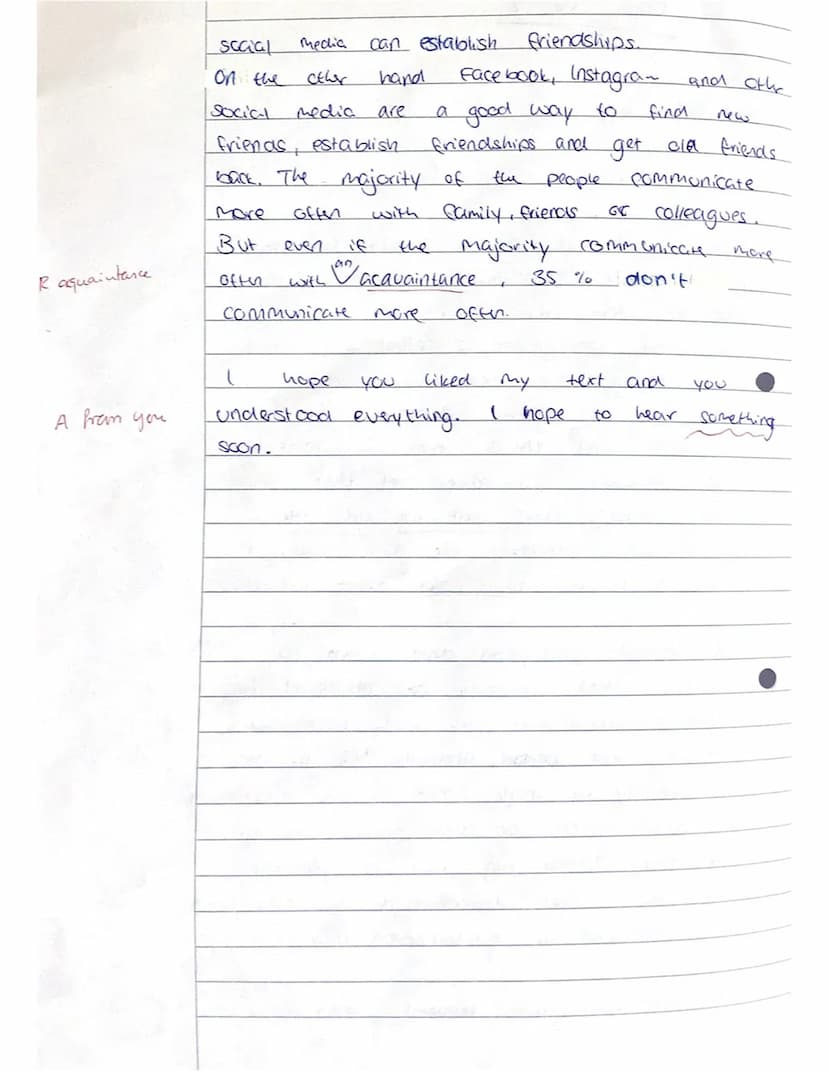 social media can establish friendships.
On the other hand Facebook, Instagram and other
social media are a good way to find new
friends, establish friendships and get old friends
back. The majority of the people communicate
more often with family, friends or colleagues.
But even if the majority communicate more
R aquaintance
often with an acquaintance, 35 % don't
communicate more often.
I hope you liked my text and you
A from you
understood everything. I hope to hear something
soon.